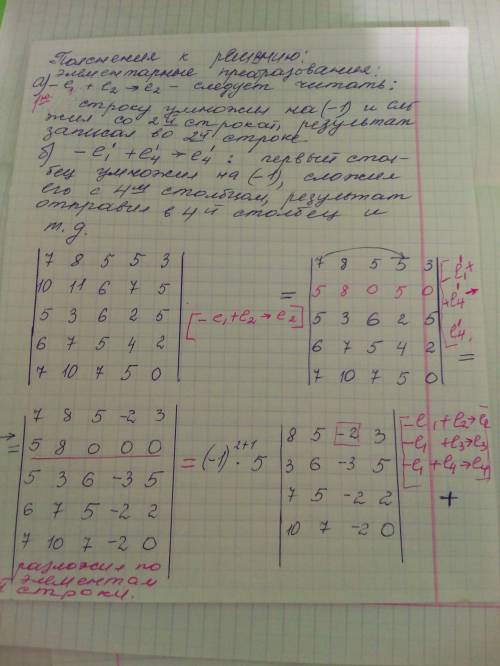 Пояснения к решению:
элементарные преобразования:
а) -e₁ + e₂ → e₂ - следует читать:
1ую строку умножил на (-1) и сло-
жил со 2ой строкой, результат
записал во 2ой строке
б) -e₁' + e₄' → e₄' : первый стол-
бец умножил на (-1), сложил
его с 4ым столбцом, результат
отправил в 4й столбец и
т.д.
|7 8 5 5 3|
|10 11 6 7 5|
|5 3 6 2 5|
|6 7 5 4 2|
|7 10 7 5 0|
[-e₁+e₂→e₂]
=
|7 8 5 5 3|
|5 8 0 5 0|
|5 3 6 2 5|
|6 7 5 4 2|
|7 10 7 5 0|
[-e₁'+
+e₄'→
e₄'
=
→
=
|7 8 5 -2 3|
|5 8 0 0 0|
|5 3 6 -3 5|
|6 7 5 -2 2|
|7 10 7 -2 0|
разложил по
элементам
строки.
= (-1)²⁺¹ · 5
|8 5 -2 3|
|3 6 -3 5|
|7 5 -2 2|
|10 7 -2 0|
[-e₁+e₂→e₂
-e₁+e₃→e₃
-e₁+e₄→e₄
+